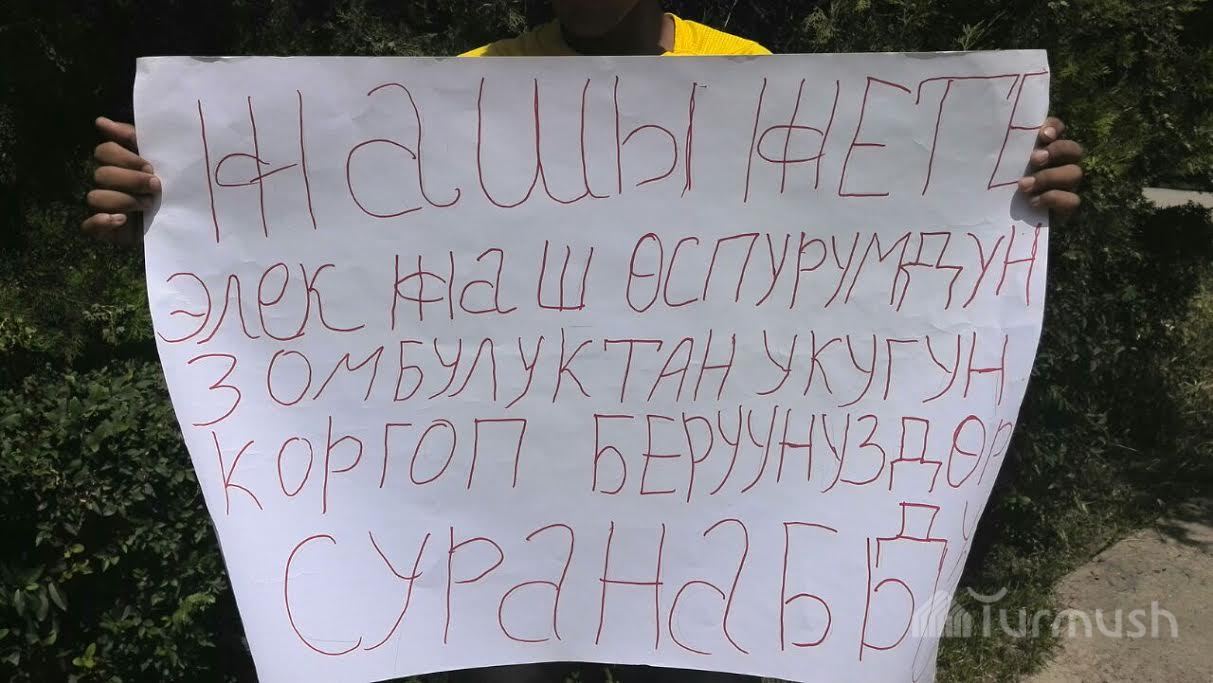 ЖАШЫ ЖЕТЕ
ЭЛЕК ЖАШ ӨСПУРУМДУН
ЗОМБУЛУКТАН УКУГУН
КОРГОП БЕРУУНУЗДӨР
СУРАНАБ
Turmush